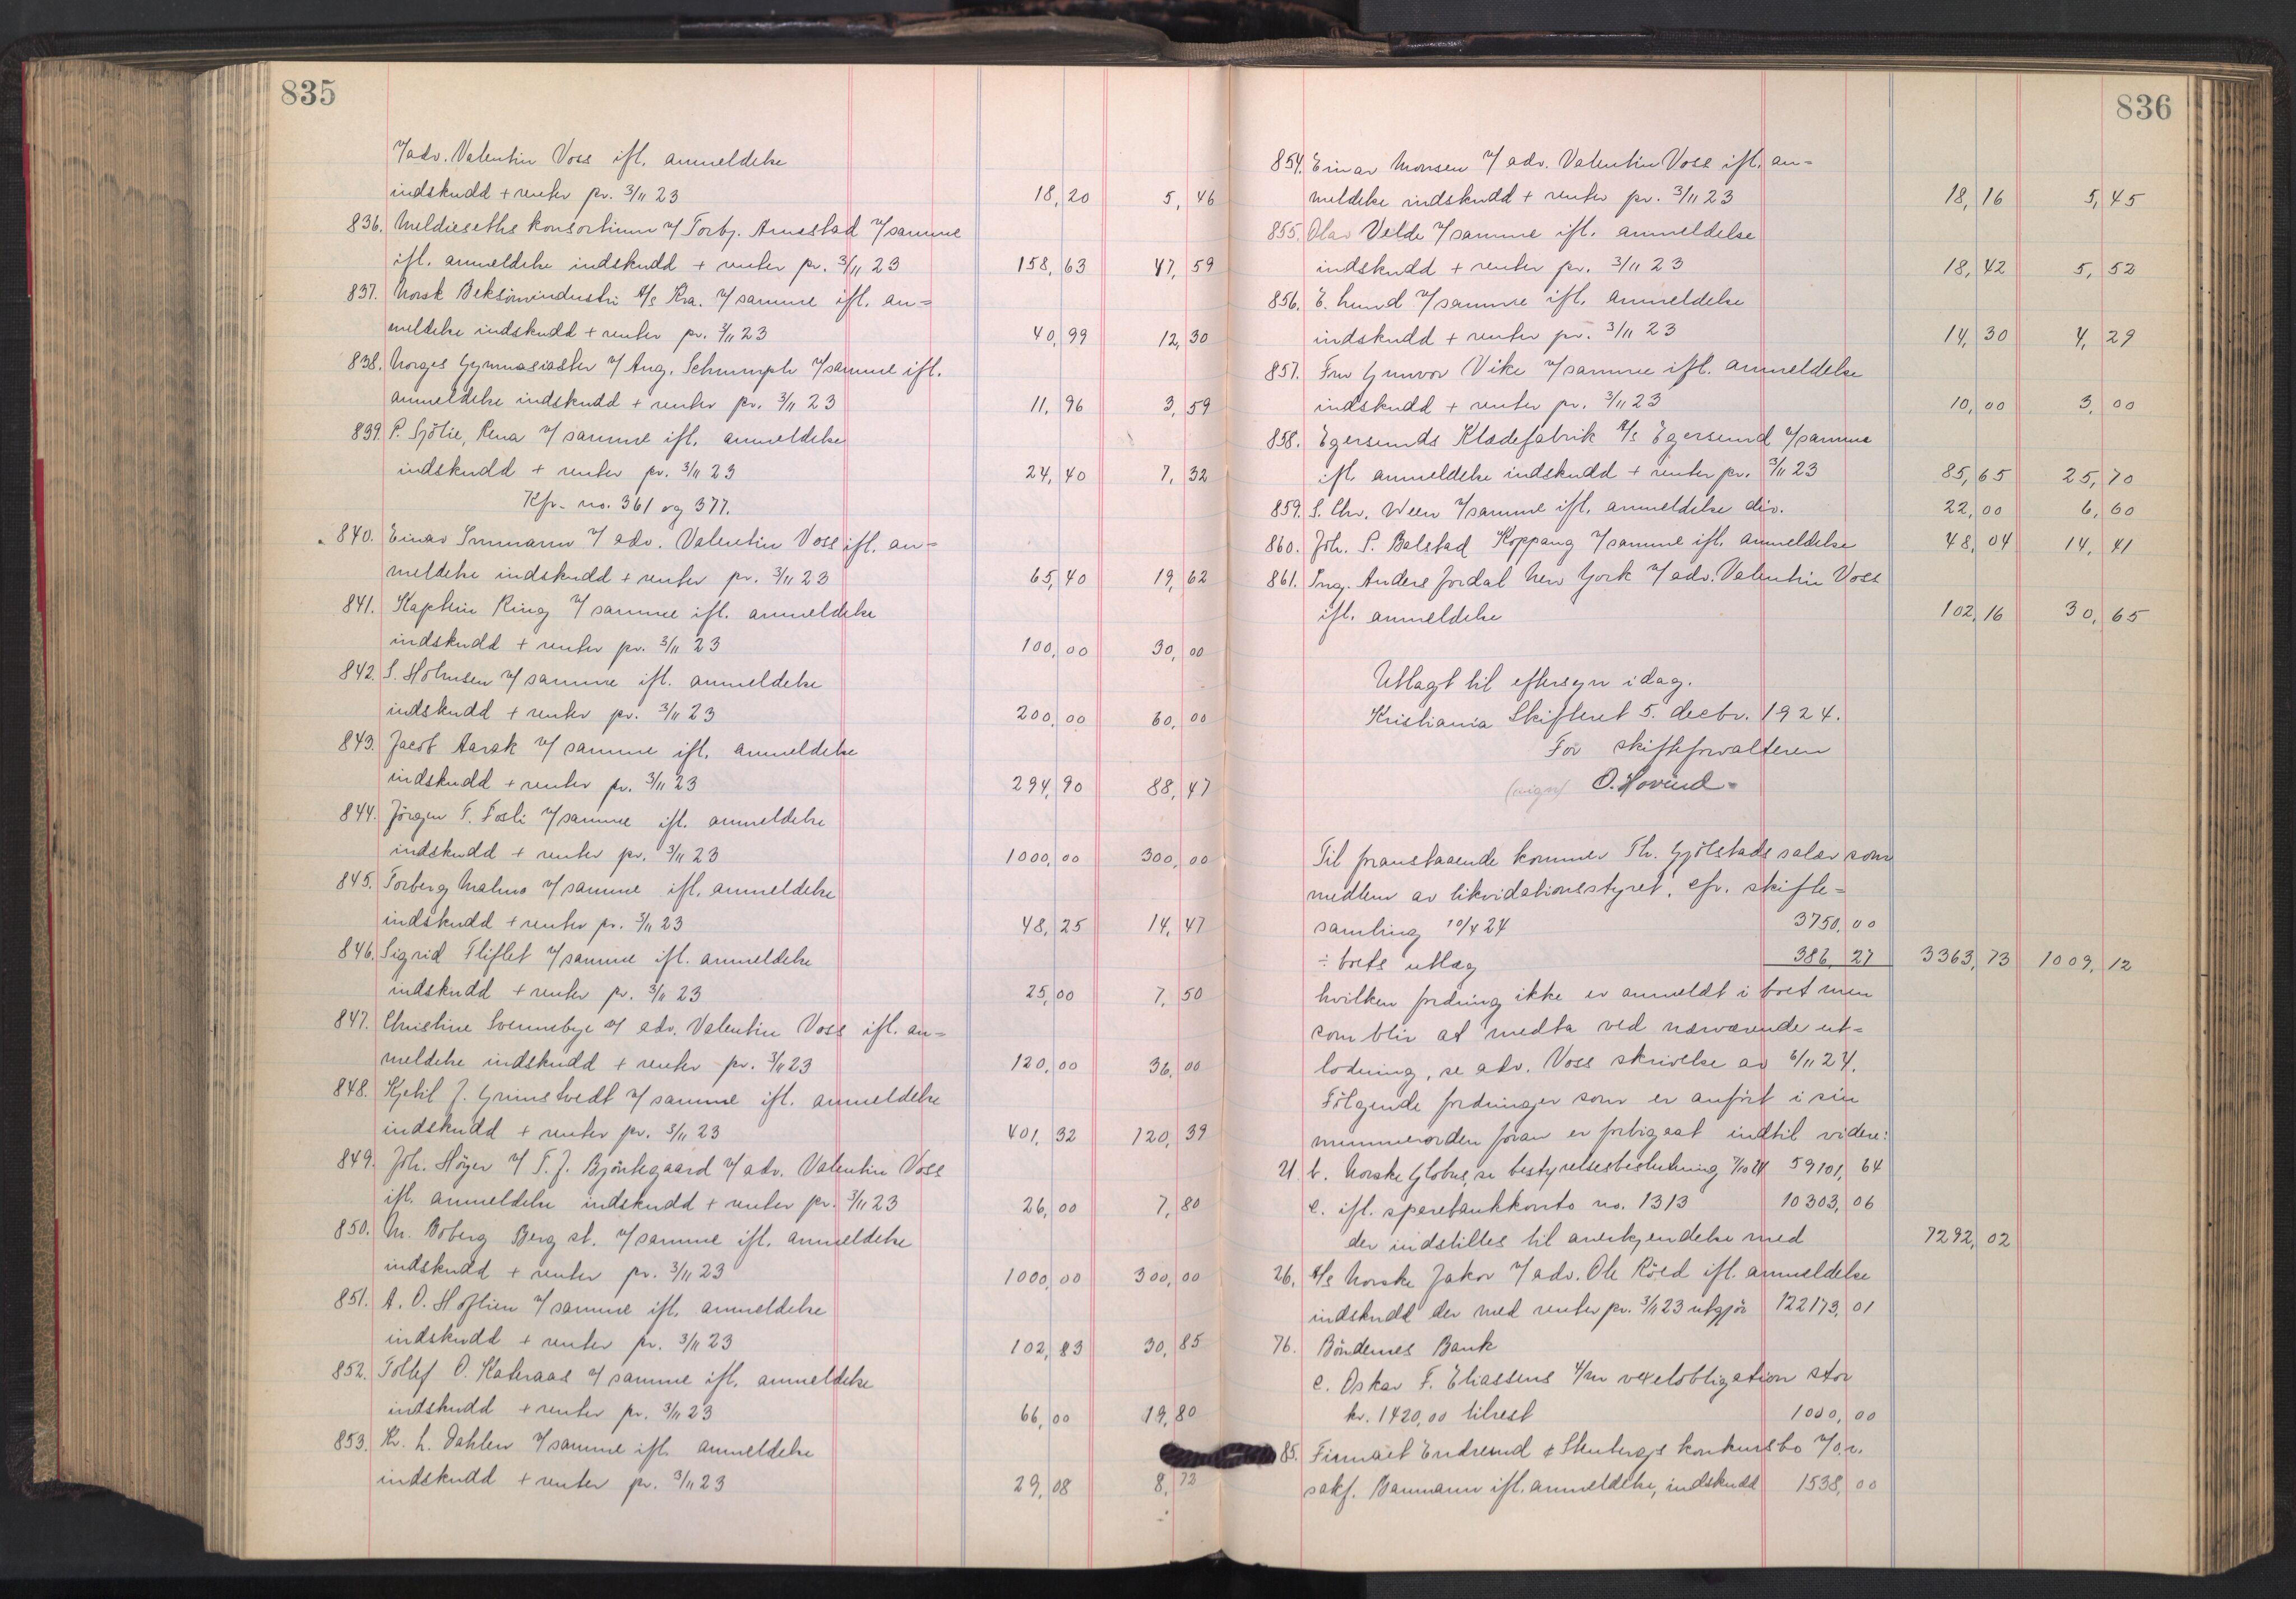 835
v/adv. Valentin Voss ifl. anmeldelse
indskudd + renter pr. 3/11 23 18,20 5,46
836. Meldieseths Konsortium v/ Torbj. Arnestad v/samme
ifl. anmeldelse indskudd + renter pr. 3/11 23 158,63 47,59
837. Norsk Beksömindustri A/s Kra. v/samme ifl. an=
meldelse indskudd + renter pr. 3/11 23 40,99 12,30
838. Norges Gymnasiaster v/ Aug. Schrumph v/samme ifl.
anmeldelse indskudd + renter pr. 3/11 23 11,96 3,59
839. P. Sjölie, Rena v/ samme ifl. anmeldelse
indskudd + renter pr. 3/11 23 24,40 7,32
Kfr. no. 361 og 377.
840. Einar v/ adv. Valentin Voss ifl. an=
meldelse indskudd + renter pr. 3/11 23 65,40 19,62
841. Kaptein Ring v/ samme ifl. anmeldelse
indskudd + renter pr. 3/11 23 100,00 30,00
842. S. Holmsen v/ samme ifl. anmeldelse
indskudd + renter pr. 3/11 23 200,00 60,00
843. Jacob Aarak v/ samme ifl. anmeldelse
indskudd + renter pr. 3/11 23 294,90 88,47
844. Jörgen T. Fosli v/samme ifl. anmeldelse
indskudd + renter pr. 3/11 23 1000,00 300,00
845. Torberg Malmo v/samme ifl. anmeldelse
indskudd + renter pr. 3/11 23 48,25 14,47
846. Sigrid Fliflet v/samme ifl. anmeldelse
indskudd + renter pr. 3/11 23 25,00 7,50
847. Christine Svennebye v/ adv. Valentin Voss ifl. an=
meldelse indskudd + renter pr. 3/11 23 120,00 36,00
848. Kjetil J. Grimstvedt v/ samme ifl. anmeldelse
indskudd + renter pr. 3/11 23 401,32 120,39
849. Joh. Höyer v/ T. J. Björkegaard v/ adv. Valentin Voss
ifl. anmeldelse indskudd + renter pr. 3/11 23 26,00 7,80
850. M. Boberg Berg st. v/samme ifl. anmeldelse
indskudd + renter pr. 3/11 23 1000,00 300,00
851. A. O. Hoflien v/samme ifl. anmeldelse
indskudd + renter pr. 3/11 23 102,83 30,85
852. Tollef O. Kateraas v/ samme ifl. anmeldelse
indskudd + renter pr. 3/11 23 66,00 19,80
853. Kr. L. Dahlen v/samme ifl. anmeldelse
indskudd + renter pr. 3/11 23 29,08 8,72
836
854. Einar Monsen v/ adv. Valentin Voss ifl. an=
meldelse indskudd + renter pr. 3/11 23 18,16 5,45
855. Olav Velde v/samme ifl. anmeldelse
indskudd + renter pr. 3/11 23 18,42 5,52
856. E. Lund v/samme ifl. anmeldelse
indskudd + renter pr. 3/11 23 14,30 4,29
857. Fru Gunvor Vike v/samme ifl. anmeldelse
indskudd + renter pr. 3/11 23 10,00 3,00
858. Egersunds Klædefabrik A/s Egersund v/samme
ifl. anmeldelse indskudd + renter pr. 3/11 23 85,65 25,70
859. S. Chr. Ween v/samme ifl. anmeldelse div. 22,00 6,60
860. Joh. P. Balstad Koppang v/samme ifl. anmeldelse 48,04 14,41
861. Ing. Anders Jordal New York v/ adv. Valentin Voss
ifl. anmeldelse 102,16 30,65
Utlagt til eftersyn idag.
Kristiania Skifteret 5. decbr. 1924.
For skifteforvalteren
(sign) O. Hovind=
Til foranstaaende kommer Th. Gjölstads salær som
medlem av likvidationsstyret, cfr. skifte=
samling 10/4 24 3750,00
÷ boets utlæg 386,27 3363,73 1009,12
hvilken fordring ikke er anmeldt i boet men
som blir at medta ved nærværende ut=
lodning, se adv. Voss skrivelse av 6/11 24.
Fölgende fordringer som er anfört i sin
nummerorden foran er forbigaat indtil videre:
21 b. Norske Globus, se bestyrelsesbeslutning 7/10 24 59101,64
c. ifl. sparebankkonto no. 1313 10303,06
der indstilles til anerkjendelse med 7292,02
26. A/s Norske Jakor v/ adv. Ole Röed ifl. anmeldelse
indskudd der med renter pr. 3/11 23 utgjör 122173,01
76. Böndernes Bank
c. Oskar F. Eliassens m vexelobligation stor
kr. 1420,00 tilrest 1000,00
85. Firmaet Endresund & Stenbergs konkursbo v/o.r.
sakf. Baumann ifl. anmeldelse, indskudd 1538,00